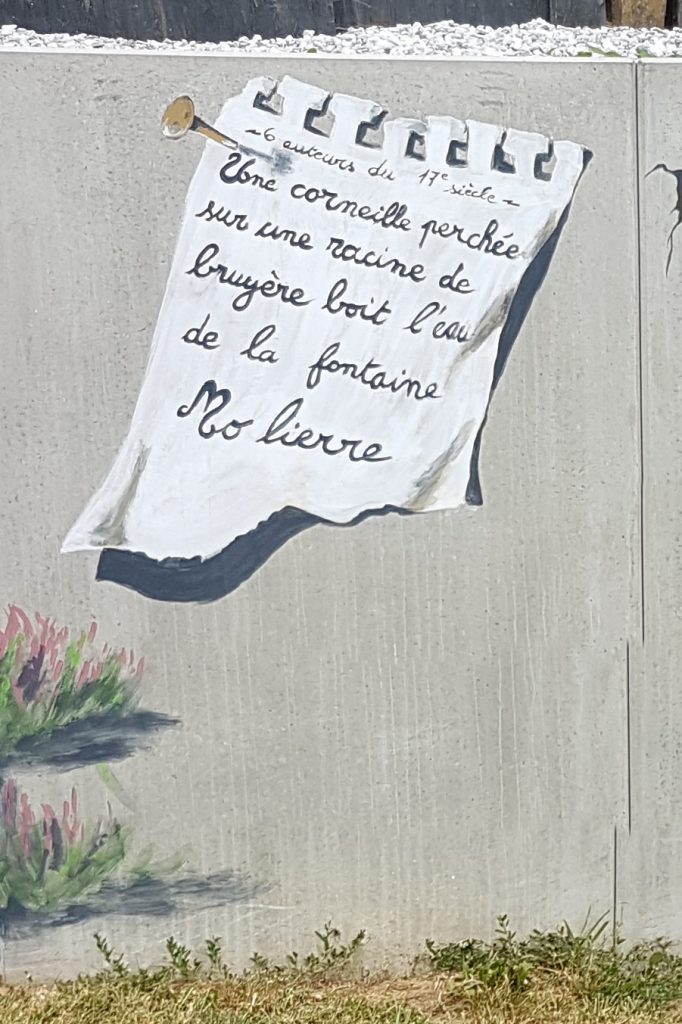 ~6 auteurs du 17e siècle~
Une corneille perchée
sur une racine de
bruyère boit l'eau
de la fontaine
Mo lierre